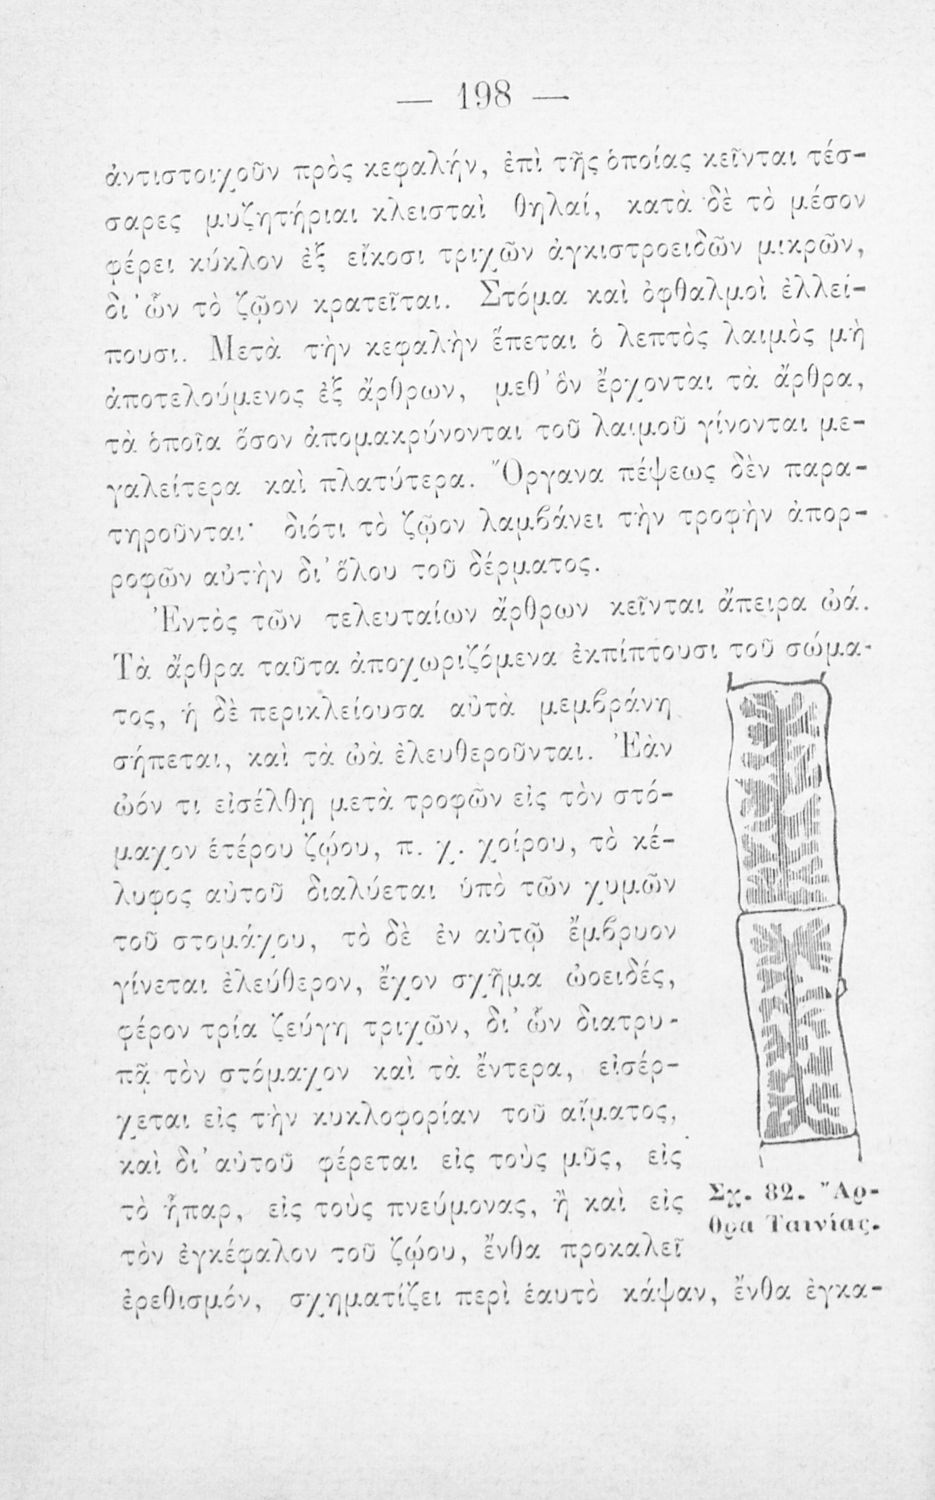 — 198 —
ἀντιστοιχοῦν πρὸς κεφαλήν, ἐπὶ τῆς ὁποίας κεῖνται τέσ-
σαρες μυζητήριαι κλεισταὶ θηλαί, κατὰ δὲ τὸ μέσον
φέρει κύκλον ἐξ εἴκοσι τριχῶν ἀγκιστροειδῶν μικρῶν,
δι' ὧν τὸ ζῷον κρατεῖται. Στόμα καὶ ὀφθαλμοὶ ἐλλεί-
πουσι. Μετὰ τὴν κεφαλὴν ἕπεται ὁ λεπτὸς λαιμὸς μὴ
ἀποτελούμενος ἐξ ἄρθρων, μεθ' ὃν ἔρχονται τὰ ἄρθρα,
τὰ ὁποῖα ὅσον ἀπομακρύνονται τοῦ λαιμοῦ γίνονται με-
γαλείτερα καὶ πλατύτερα. Ὄργανα πέψεως δὲν παρα-
τηροῦνται· διότι τὸ ζῷον λαμβάνει τὴν τροφὴν ἀπορ-
ροφῶν αὐτὴν δι' ὅλου τοῦ δέρματος.
Ἐντὸς τῶν τελευταίων ἄρθρων κεῖνται ἄπειρα ὠά.
Τὰ ἄρθρα ταῦτα ἀποχωριζόμενα ἐκπίπτουσι τοῦ σώμα-
τος, ἡ δὲ περικλείουσα αὐτὰ μεμβράνη
σήπεται, καὶ τὰ ὠὰ ἐλευθεροῦνται. Ἐὰν
ὠόν τι εἰσέλθῃ μετὰ τροφῶν εἰς τὸν στό-
μαχον ἑτέρου ζῴου, π. χ. χοίρου, τὸ κέ-
λυφος αὐτοῦ διαλύεται ὑπὸ τῶν χυμῶν
τοῦ στομάχου, τὸ δὲ ἐν αὐτῷ ἔμβρυον
γίνεται ἐλεύθερον, ἔχον σχῆμα ὠοειδές,
φέρον τρία ζεύγη τριχῶν, δι' ὧν διατρυ-
πᾷ τὸν στόμαχον καὶ τὰ ἔντερα, εἰσέρ-
χεται εἰς τὴν κυκλοφορίαν τοῦ αἵματος,
καὶ δι' αὐτοῦ φέρεται εἰς τοὺς μῦς, εἰς
τὸ ἧπαρ, εἰς τοὺς πνεύμονας, ἢ καὶ εἰς
τὸν ἐγκέφαλον τοῦ ζῴου, ἔνθα προκαλεῖ
ἐρεθισμόν, σχηματίζει περὶ ἑαυτὸ κάψαν, ἔνθα ἐγκα-
Σχ. 82. Ἄρ-
θρα Ταινίας.